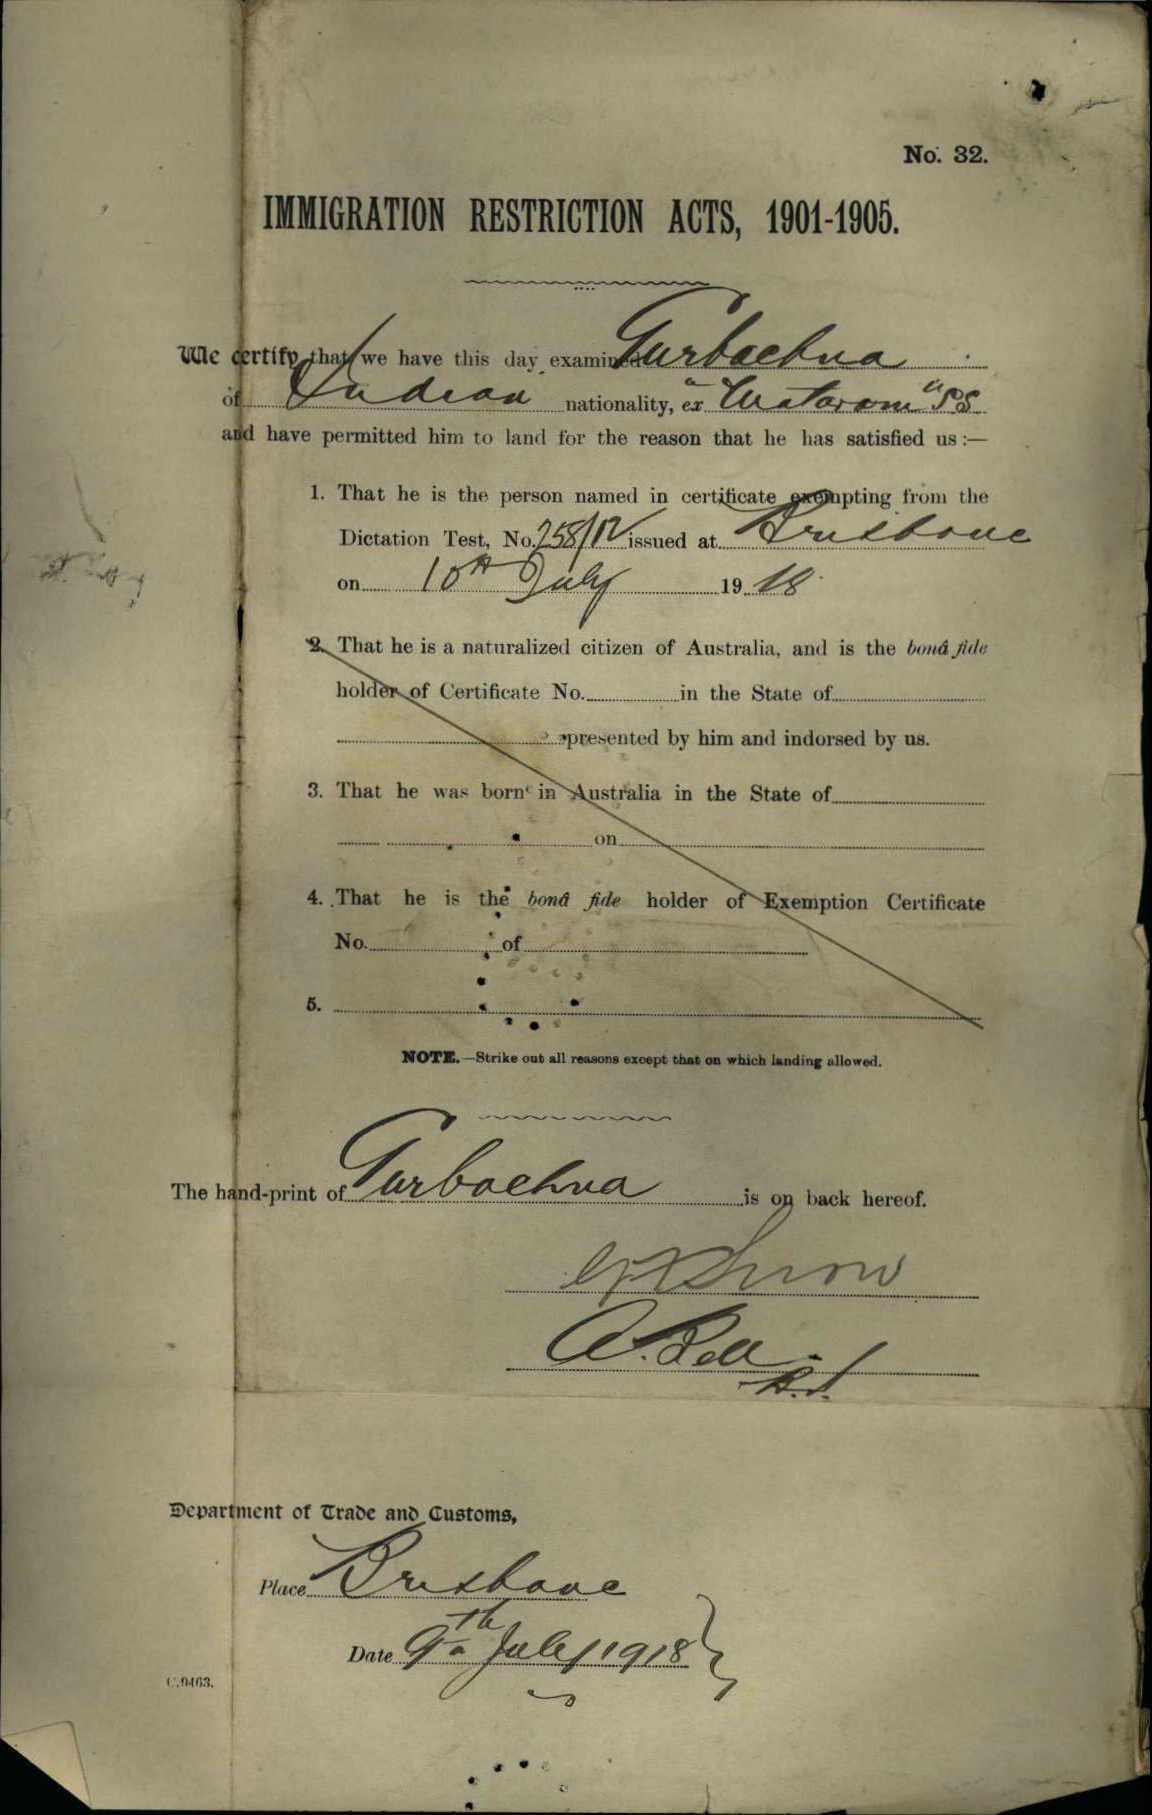 No. 32.
IMMIGRATION RESTRICTION ACTS, 1901-1905.
We certify that we have this day examined Gurbachna
of Indian nationality, ex "Mataram" SS
and have permitted him to land for the reason that he has satisfied us:—
1. That he is the person named in certificate exempting from the
Dictation Test, No. 258/12 issued at Brisbane
on 10th July 19 18
2. That he is a naturalized citizen of Australia, and is the bonâ fide
holder of Certificate No. in the State of
presented by him and indorsed by us.
3. That he was born in Australia in the State of
on
4. That he is the bonâ fide holder of Exemption Certificate
No. of
5.
NOTE.—Strike out all reasons except that on which landing allowed.
The hand-print of Gurbachna is on back hereof.
Snow
A. Bell
Department of Trade and Customs,
Place Brisbane
Date 9th July 1918
C.9463.